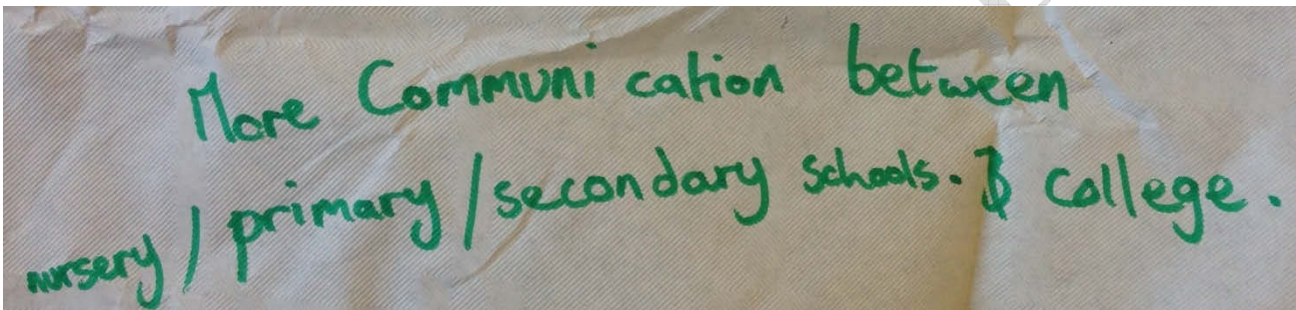 More Communication between
nursery / primary / secondary schools. & college.